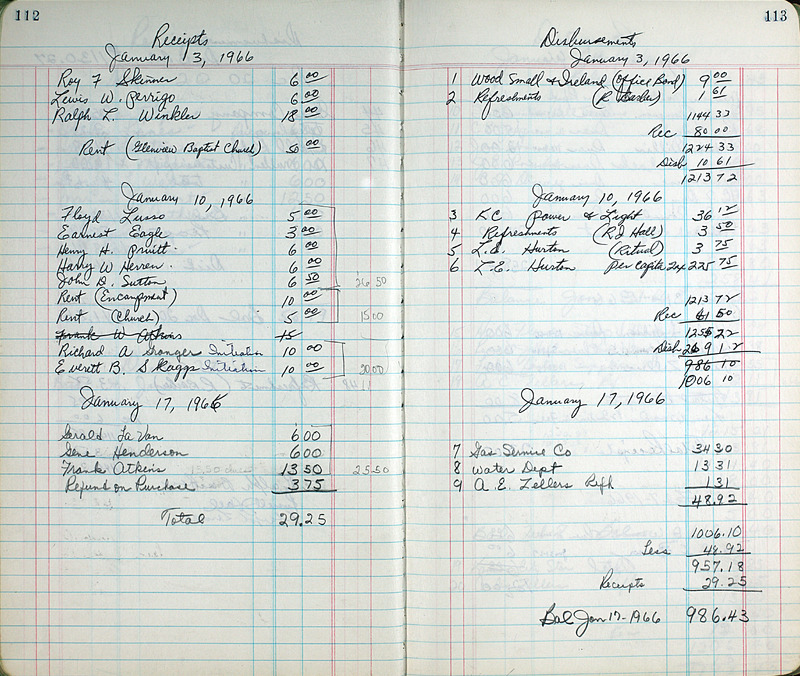 112
Receipts
January 3, 1966
Roy F Skinner 6 00
Lewis W. Perrigo 6 00
Ralph L. Winkler 18 00
Rent (Glenview Baptist Church) 50 00
January 10, 1966
Floyd Lusso 5 00
Earnest Eagle 3 00
Henry H. Pruitt. 6 00
Harry W Herren. 6 00
John D. Sutton 6 50 26 50
Rent (Encampment) 10 00
Rent (Church) 5 00 15 00
Frank W Atkins 15
Richard A Granger Initiation 10 00
Everett B. Skaggs Initiation 10 00 20 00
January 17, 1966
Gerald La Van 6 00
Gene Henderson 6 00
Frank Atkins 13 50 25 50
Refund on Purchase 3 75
Total 29.25
113
Disbursements
January 3, 1966
1 Wood Small & Ireland (Office Bond) 9 00
2 Refreshments (R ) 1 61
1144 33
Rec 80 00
1224 33
Disb 10 61
1213 72
January 10, 1966
3 KC Power & Light 36 12
4 Refreshments (RJ Hall) 3 50
5 L.E. Hurton (Ritual) 3 75
6 L.E. Hurton Per Capita 225 75
1213 72
Rec 61 50
22
Disb 269 1 2
986 10
1006 10
January 17, 1966
7 Gas Service Co 34 30
8 Water Dept 13 31
9 A. E. Zellers Refh 1 31
48.92
1006.10
Less 48.92
957.18
Receipts 29.25
Bal Jan 17-1966 986.43